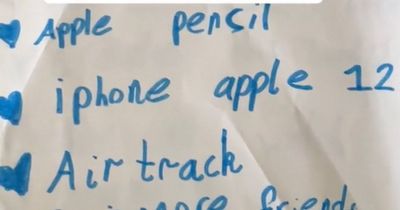 Apple pencil
iphone apple 12
Air track
more friends